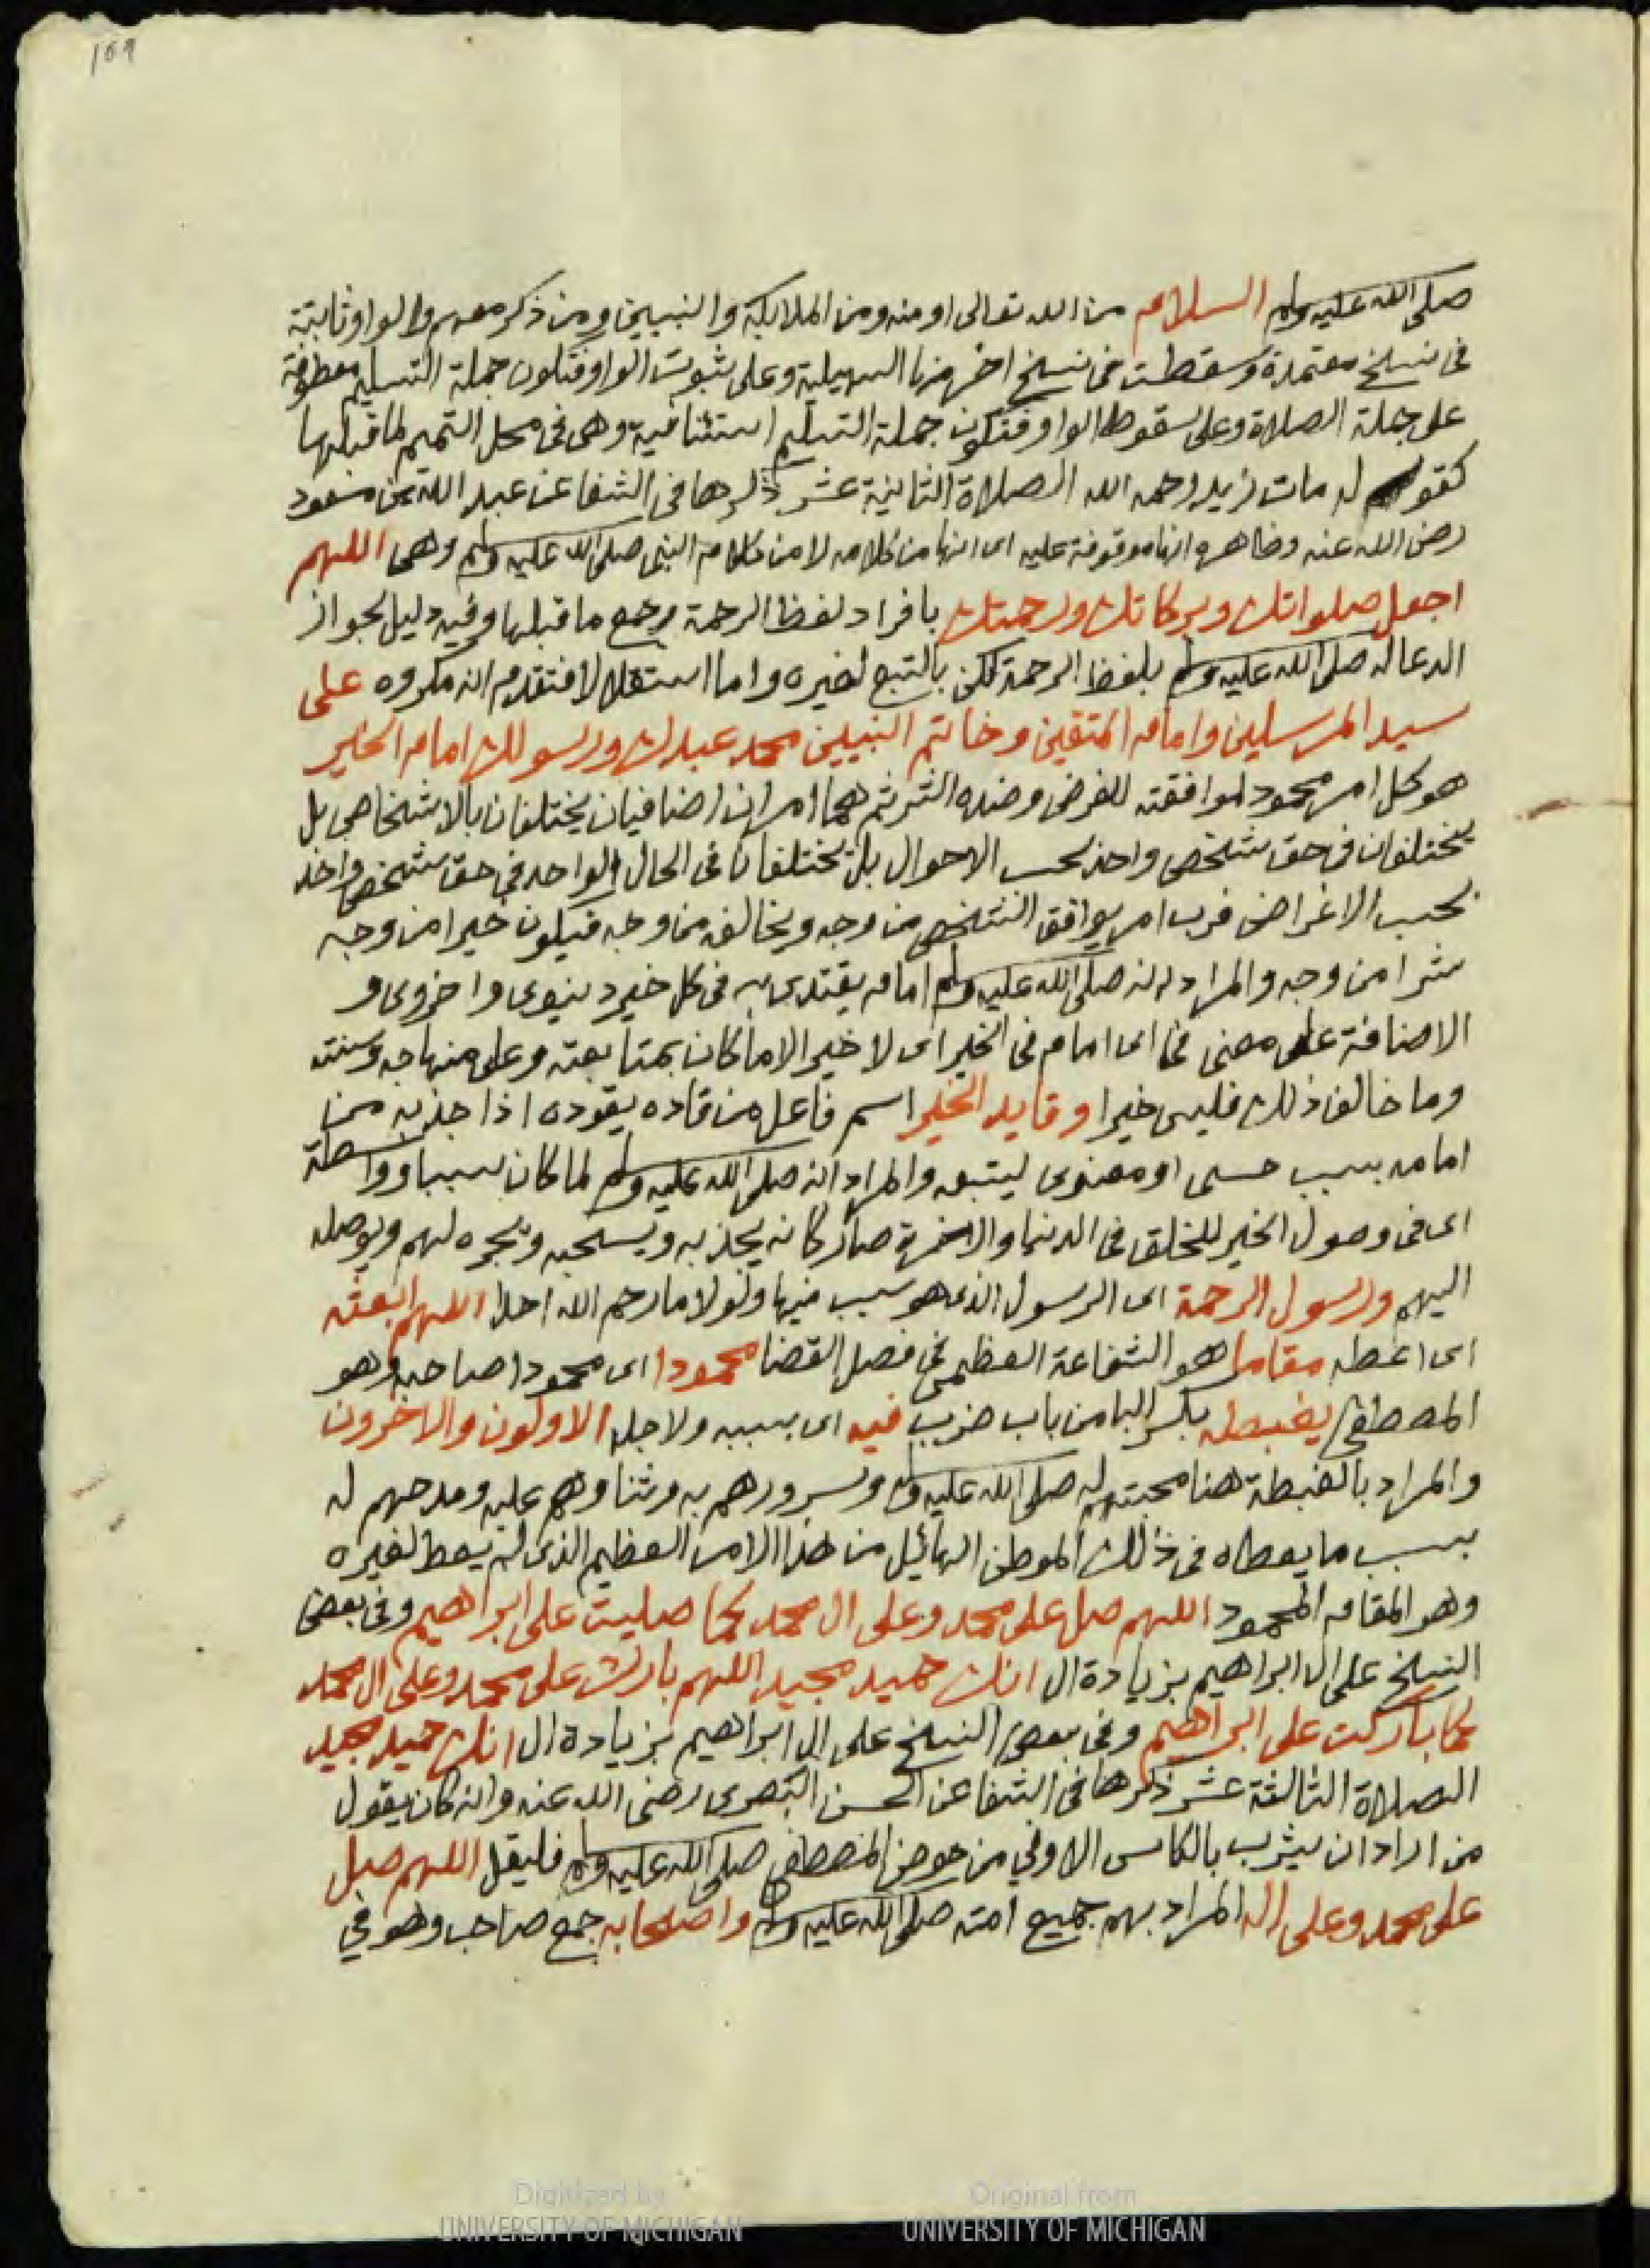 109
صلى الله عليه وسلم السلام من الله تعالى او منه ومن الملايكة والنبيين ومن ذكر معهم والواو ثابتة
فى نسخ معتمدة وسقطت فى نسخ اخر منها السهيلية وعلى ثبوت الواو فتكون جملة التسليم معطوفة
على جملة الصلاة وعلى سقوط الواو فتكون جملة التسليم استئنافية وهى فى محل التتميم لما قبلها
كقو له مات زيد رحمه الله الصلاة الثانية عشر ذكرها فى الشفا عن عبد الله بن مسعود
رضى الله عنه وظاهره انها موقوفة عليه اى انها من كلامه لا من كلام النبى صلى الله عليه وسلم وهى اللهم
اجعل صلواتك وبركاتك ورحمتك بافراد لفظ الرحمة وجمع ما قبلها وفيه دليل لجواز
الدعا له صلى الله عليه وسلم بلفظ الرحمة لكن بالتبع لغيره واما استقلالا فتقدم انه مكروه على
سيد المرسلين وامام المتقين وخاتم النبيين محمد عبدك ورسولك امام الخير
هو كل امر محمود لموافقته للغرض وضده الشر ثم هما امران اضافيان يختلفان بالاشخاص بل
يختلفان فى حق شخص واحد بحسب الاحوال بل يختلفان فى الحال الواحد فى حق شخص واحد
بحسب الاغراض فرب امر يوافق الشخص من وجه ويخالفه من وجه فيكون خيرا من وجه
شرا من وجه والمراد انه صلى الله عليه وسلم امام يقتدى به فى كل خير دينوى واخروى و
الاضافة على معنى فى اى امام فى الخير اى لا خير الا ما كان بمتابعته وعلى منهاجه وسنته
وما خالف ذلك فليس خيرا وقايد الخير اسم فاعل من قاده يقوده اذا جذبه من
امامه بسبب حسى او معنوى ليتبعه والمراد انه صلى الله عليه وسلم لما كان سببا وواسطة
اى فى وصول الخير للخلق فى الدنيا والاخرة صار كانه يجذبه ويسحبه ويجره لهم ويوصله
اليهم ورسول الرحمة اى الرسول الذى هو سبب فيها ولولاه ما رحم الله احدا اللهم ابعثه
اى اعطه مقاما هو الشفاعة العظمى فى فصل القضا محمودا اى محمودا صاحبه وهو
المصطفى يغبطه بكسر البا من باب ضرب فيه اى بسببه ولاجله الاولون والاخرون
والمراد بالغبطة هنا محبتهم له صلى الله عليه وسلم وسرورهم به وثناوهم عليه ومدحهم له
بسبب ما يعطاه فى ذلك الموطن الهائيل من هذا الامر العظيم الذى لم يعط لغيره
وهو المقام المحمود اللهم صل على محمد وعلى ال محمد كما صليت على ابراهيم وفى بعض
النسخ على ال ابراهيم بزيادة ال انك حميد مجيد اللهم بارك على محمد وعلى ال محمد
كما باركت على ابراهيم وفى بعض النسخ على ال ابراهيم بزيادة ال انك حميد مجيد
الصلاة الثالثة عشر ذكرها فى الشفا عن الحسن البصرى رضى الله عنه وانه كان يقول
من اراد ان يشرب بالكاس الاوفى من حوض المصطفى صلى الله عليه وسلم فليقل اللهم صل
على محمد وعلى اله المراد بهم جميع امته صلى الله عليه وسلم واصحابه جمع صاحب وهو فى
Digitized by
UNIVERSITY OF MICHIGAN
Original from
UNIVERSITY OF MICHIGAN